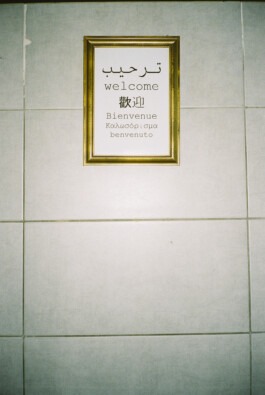 ترحيب
welcome
歡迎
Bienvenue
Καλωσόρισμα
benvenuto